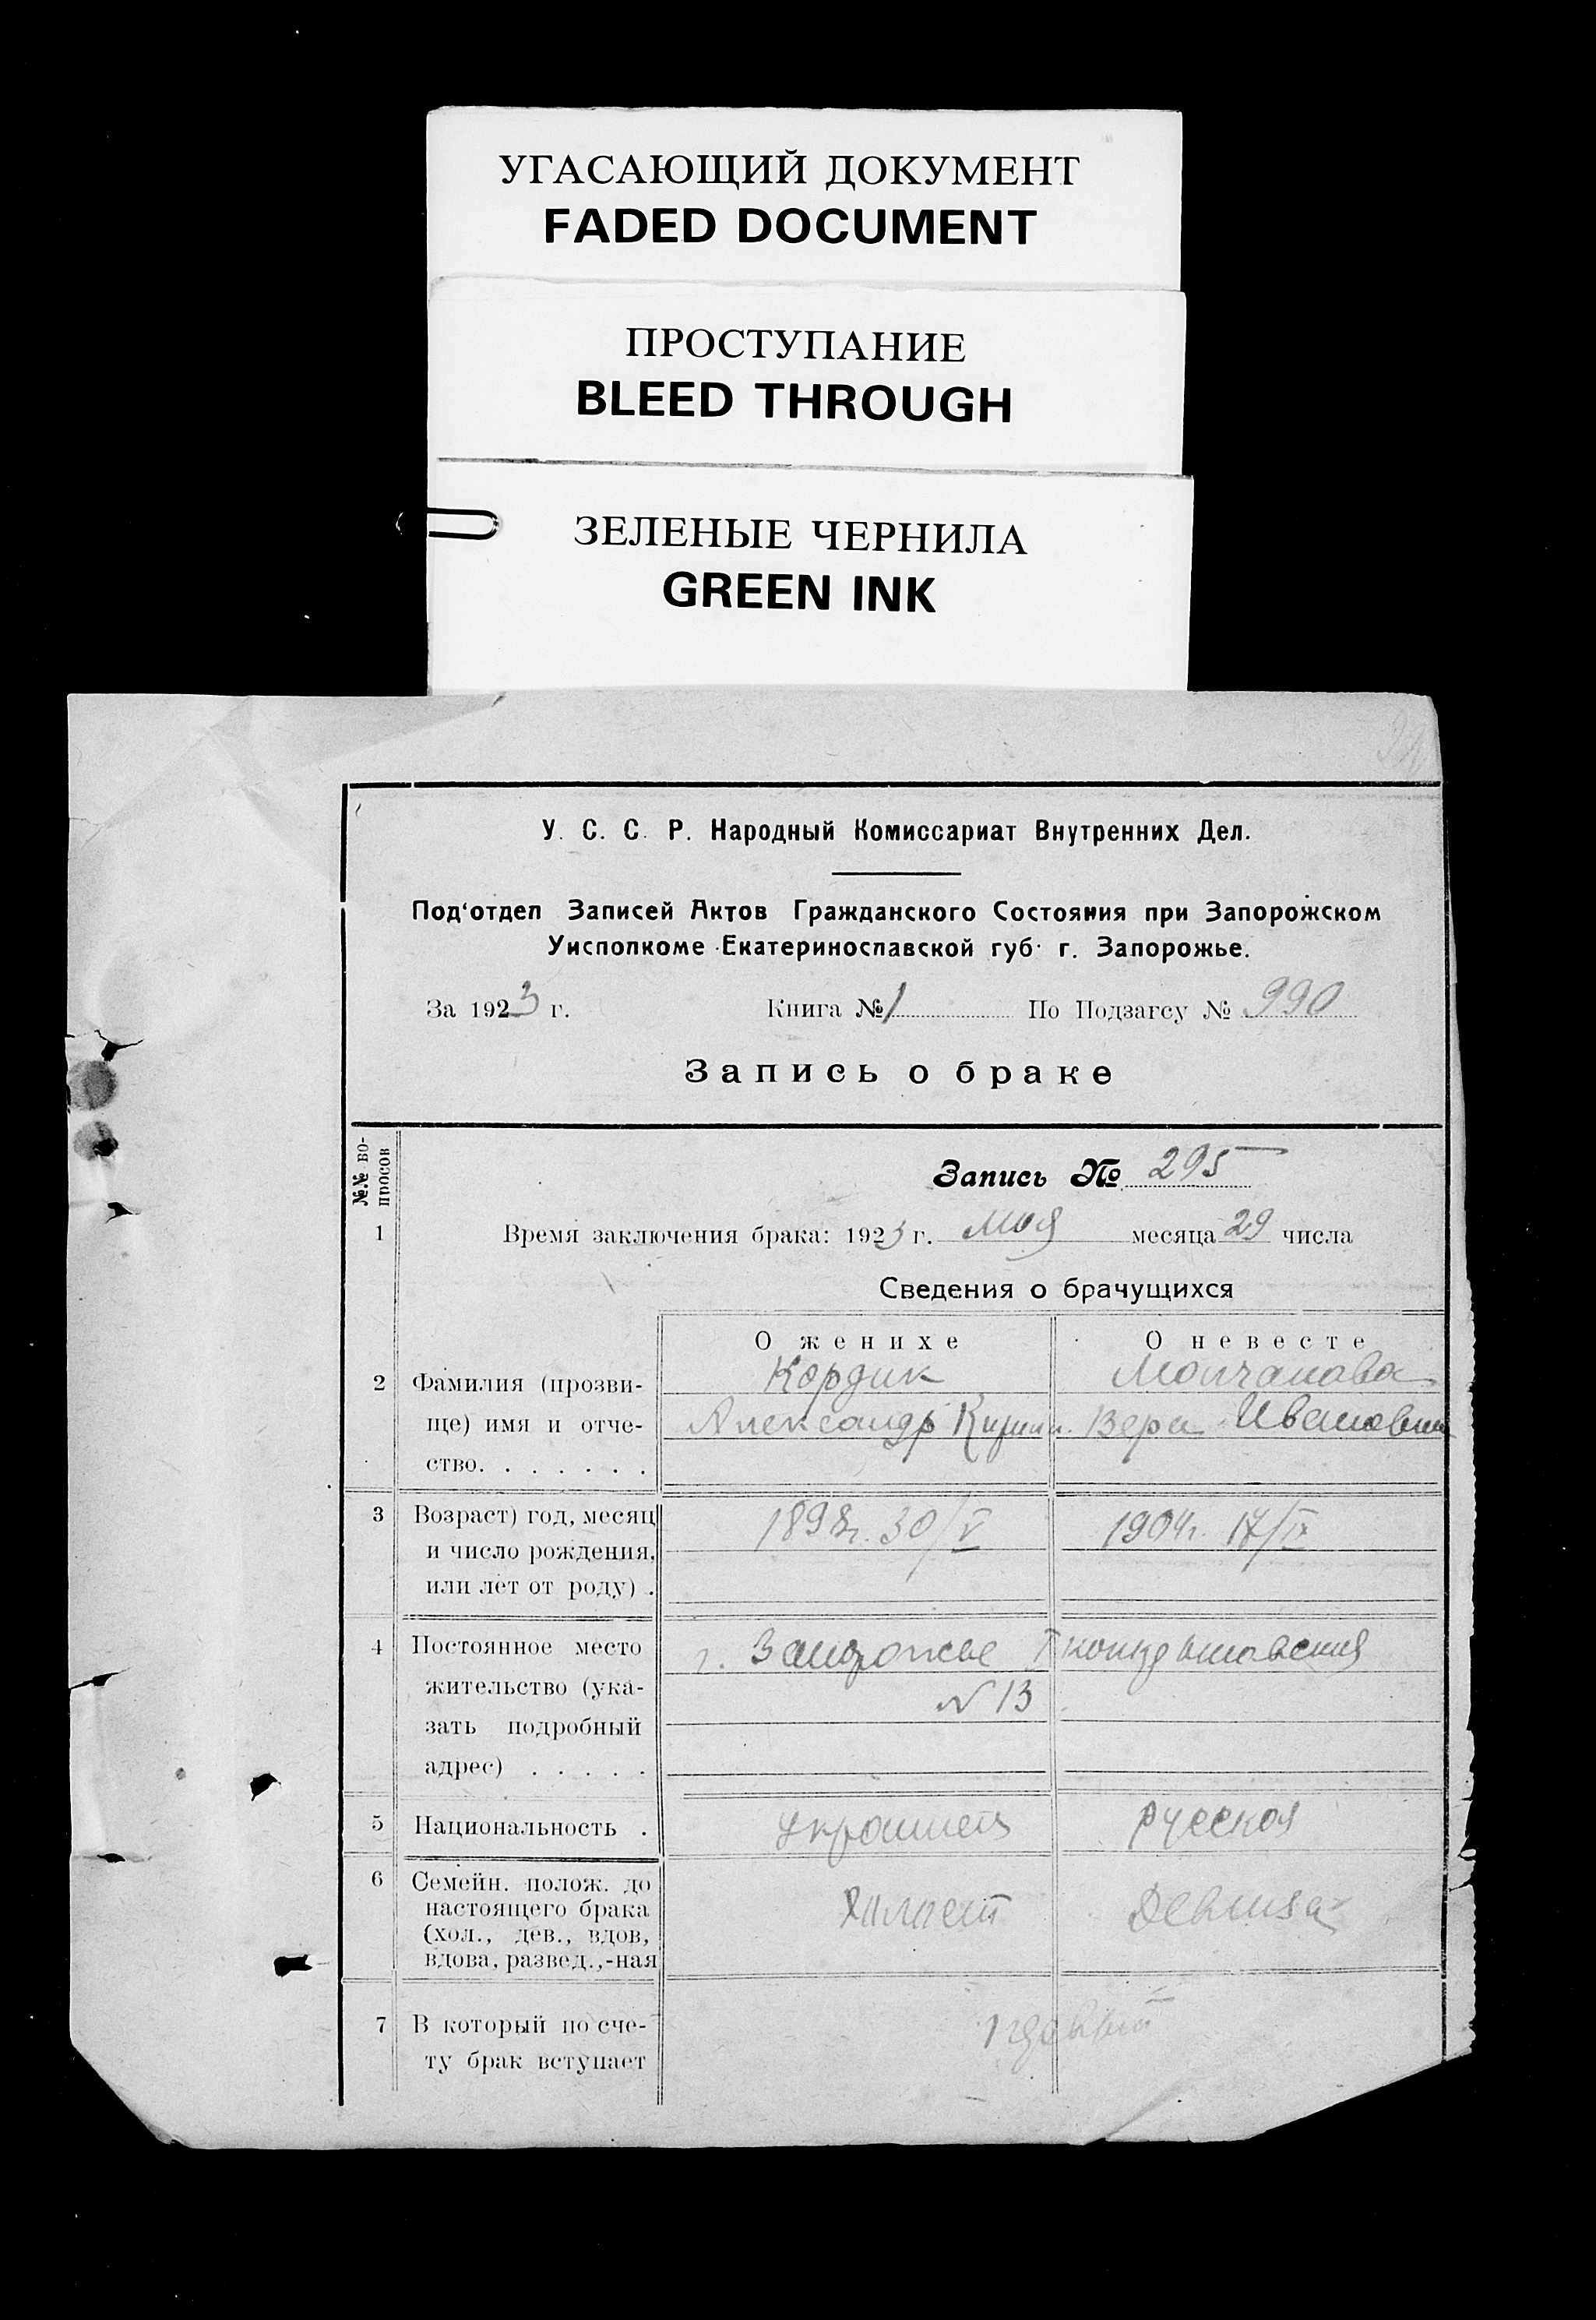 УГАСАЮЩИЙ ДОКУМЕНТ
FADED DOCUMENT
ПРОСТУПАНИЕ
BLEED THROUGH
ЗЕЛЕНЫЕ ЧЕРНИЛА
GREEN INK
У. С. С. Р. Народный Комиссариат Внутренних Дел.
Под'отдел Записей Актов Гражданского Состояния при Запорожском
Уисполкоме Екатеринославской губ. г. Запорожье.
За 1923 г. Книга № 1 По Подзагсу № 990
Запись о браке
№№ во-
просов
Запись № 295
1 Время заключения брака: 1923 г. мая месяца 29 числа
Сведения о брачущихся
О женихе О невесте
2 Фамилия (прозви- Кордик Молчанова
ще) имя и отче- Александр Кирилл. Вера Ивановна
ство. . . . . . .
3 Возраст) год, месяц 1898г. 30/V 1904г. 17/IX
и число рождения,
или лет от роду) .
4 Постоянное место г. Запорожье
жительство (ука- N 13
зать подробный
адрес) . . . . .
5 Национальность . украинец русская
6 Семейн. полож. до
настоящего брака Холост Девица
(хол., дев., вдов,
вдова, развед.,-ная
7 В который по сче-
ту брак вступает